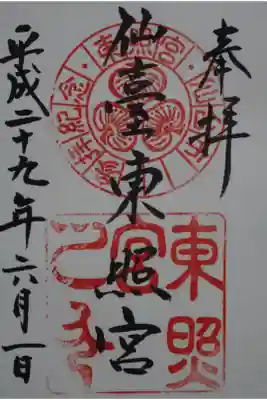 奉拝
仙臺東照宮
平成二十九年六月一日
東照宮